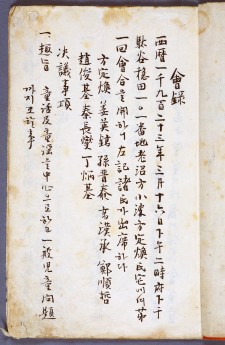 會錄
西曆一千九百二十三年三月十六日下午二時府下千
駄谷穩田一〇一番地老沼方小波方定煥氏宅에서第
一回會合을하니左記諸氏가出席하다
方定煥 姜英鎬 孫晋泰 高漢承 鄭順哲
趙俊基 秦長燮 丁炳基
決議事項
一 趣旨 童話及童謠를中心으로하고一般兒童問題
까지로할事